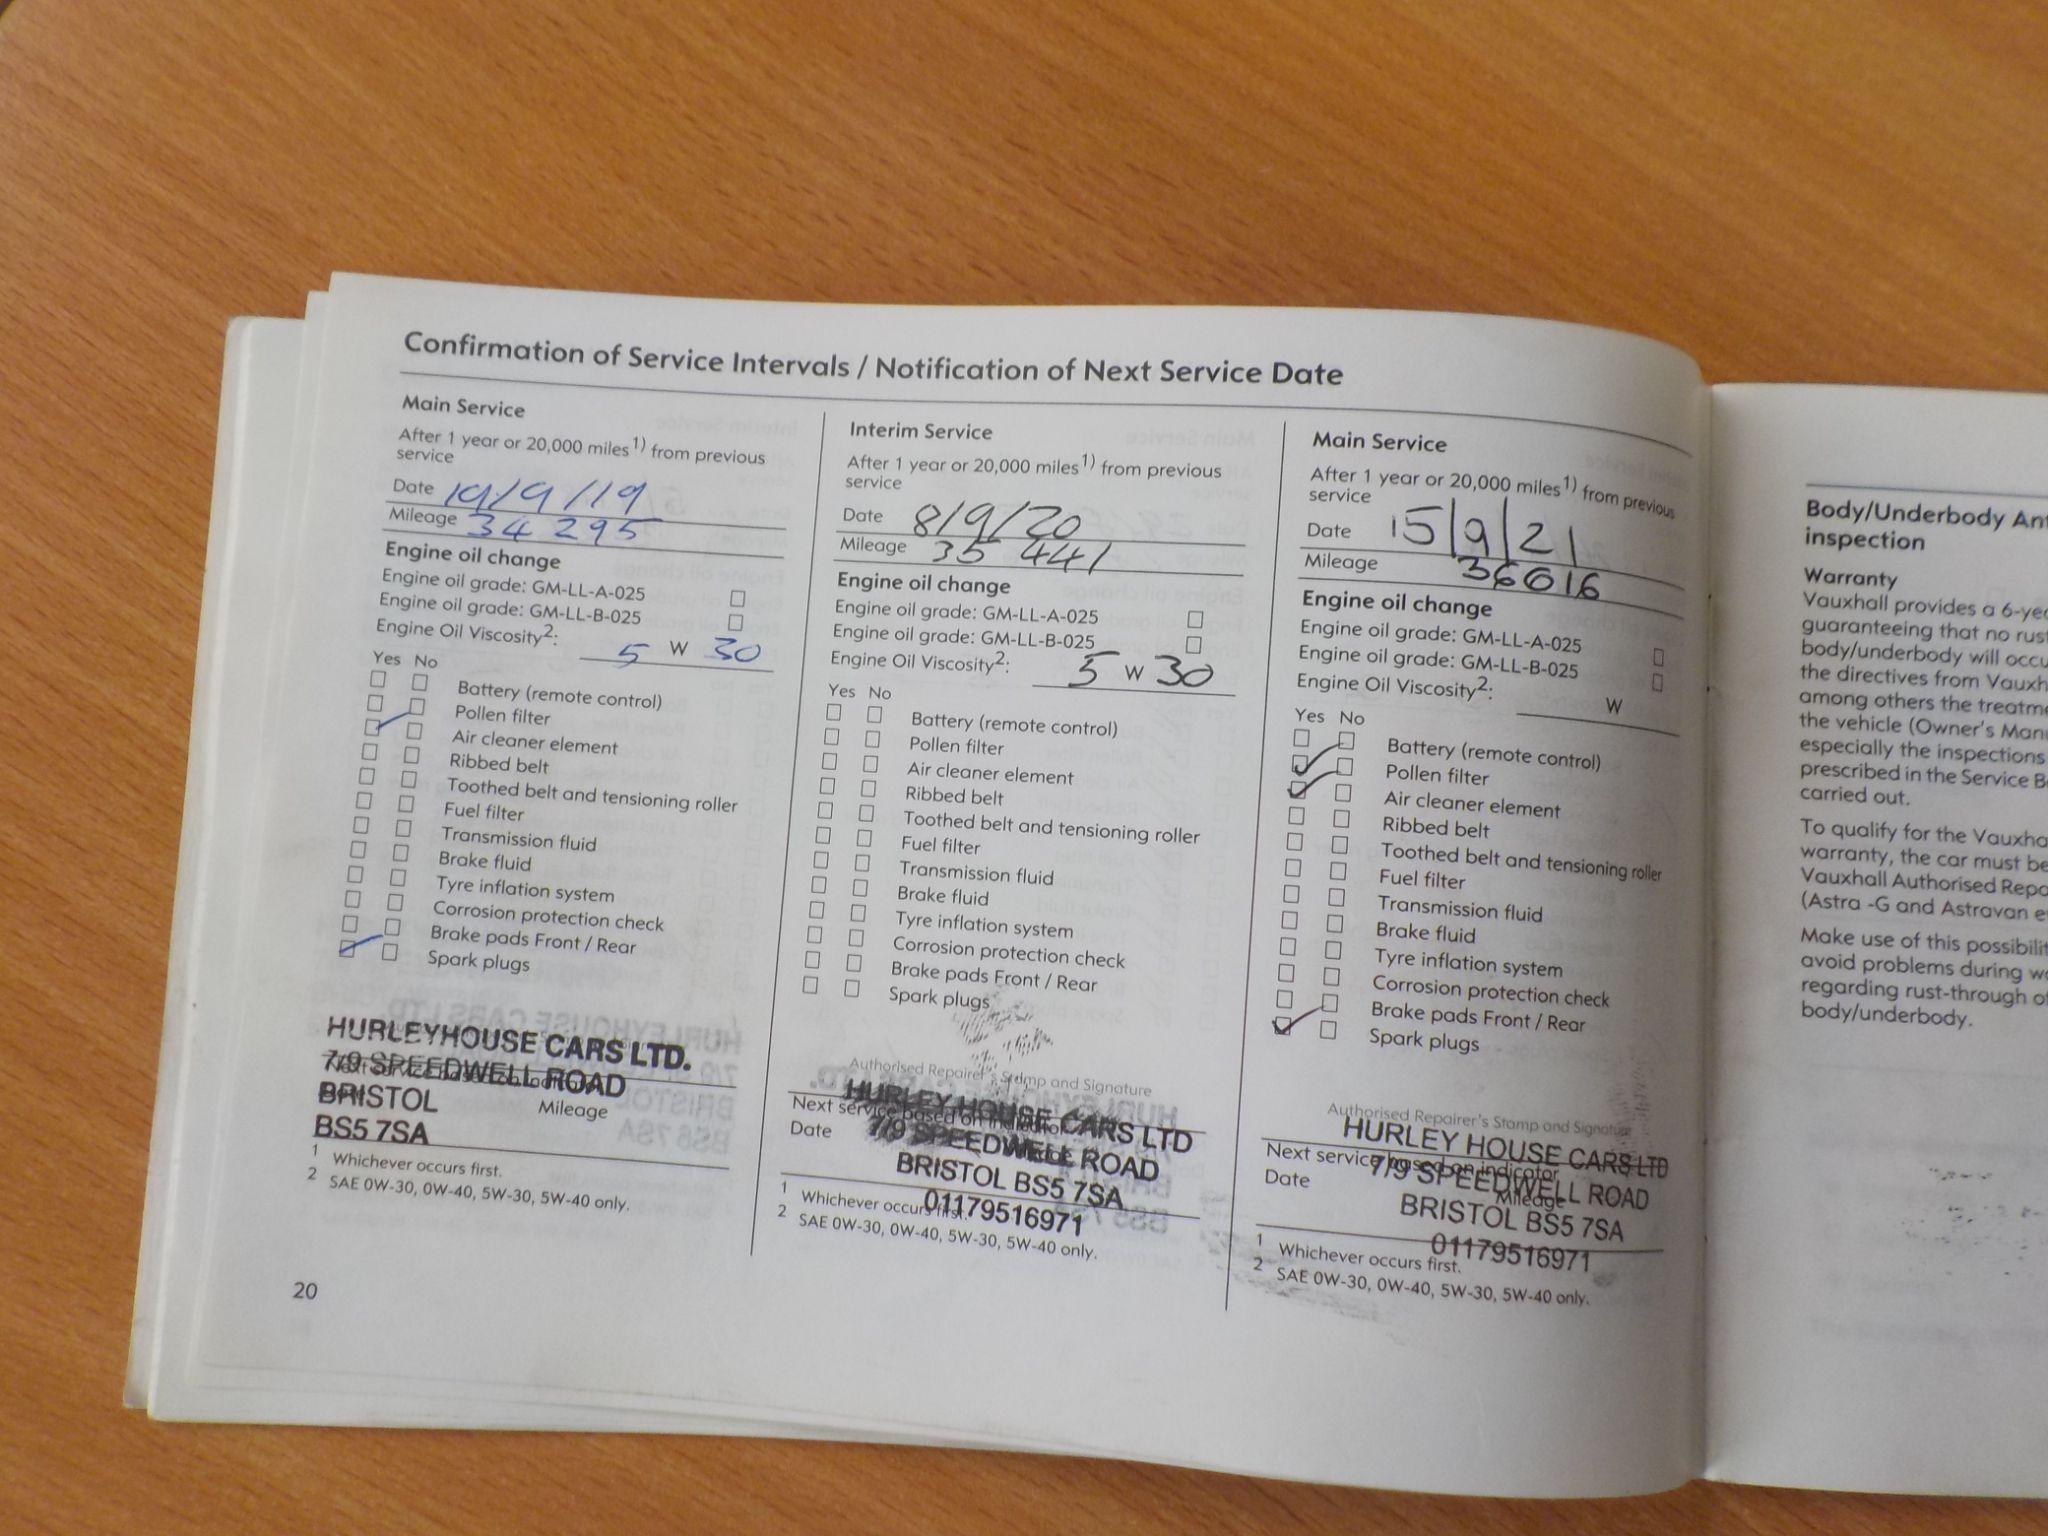 Confirmation of Service Intervals / Notification of Next Service Date
Main Service
After 1 year or 20,000 miles1) from previous
service
Date 19/9/19
Mileage 34 295
Engine oil change
Engine oil grade: GM-LL-A-025
Engine oil grade: GM-LL-B-025
Engine Oil Viscosity2: 5 W 30
Yes No
Battery (remote control)
Pollen filter
Air cleaner element
Ribbed belt
Toothed belt and tensioning roller
Fuel filter
Transmission fluid
Brake fluid
Tyre inflation system
Corrosion protection check
Brake pads Front / Rear
Spark plugs
HURLEYHOUSE CARS LTD.
7/9 SPEEDWELL ROAD
BRISTOL
Mileage
BS5 7SA
1 Whichever occurs first.
2 SAE 0W-30, 0W-40, 5W-30, 5W-40 only.
20
Interim Service
After 1 year or 20,000 miles1) from previous
service
Date 8/9/20
Mileage 35 441
Engine oil change
Engine oil grade: GM-LL-A-025
Engine oil grade: GM-LL-B-025
Engine Oil Viscosity2: 5 W 30
Yes No
Battery (remote control)
Pollen filter
Air cleaner element
Ribbed belt
Toothed belt and tensioning roller
Fuel filter
Transmission fluid
Brake fluid
Tyre inflation system
Corrosion protection check
Brake pads Front / Rear
Spark plugs
Authorised Repairer's Stamp and Signature
HURLEY HOUSE CARS LTD
Next service based on indicator
Date
7/9 SPEEDWELL ROAD
BRISTOL BS5 7SA
01179516971
1 Whichever occurs first.
2 SAE 0W-30, 0W-40, 5W-30, 5W-40 only.
Main Service
After 1 year or 20,000 miles1) from previous
service
Date 15/9/21
Mileage 36016
Engine oil change
Engine oil grade: GM-LL-A-025
Engine oil grade: GM-LL-B-025
Engine Oil Viscosity2: W
Yes No
Battery (remote control)
Pollen filter
Air cleaner element
Ribbed belt
Toothed belt and tensioning roller
Fuel filter
Transmission fluid
Brake fluid
Tyre inflation system
Corrosion protection check
Brake pads Front / Rear
Spark plugs
Authorised Repairer's Stamp and Signature
HURLEY HOUSE CARS LTD
Next service based on indicator
7/9 SPEEDWELL ROAD
Date Mileage
BRISTOL BS5 7SA
01179516971
1 Whichever occurs first.
2 SAE 0W-30, 0W-40, 5W-30, 5W-40 only.
Body/Underbody Ant
inspection
Warranty
Vauxhall provides a 6-yea
guaranteeing that no rust
body/underbody will occu
the directives from Vauxh
among others the treatme
the vehicle (Owner's Manu
especially the inspections
prescribed in the Service B
carried out.
To qualify for the Vauxha
warranty, the car must be
Vauxhall Authorised Repa
(Astra -G and Astravan e
Make use of this possibilit
avoid problems during w
regarding rust-through of
body/underbody.